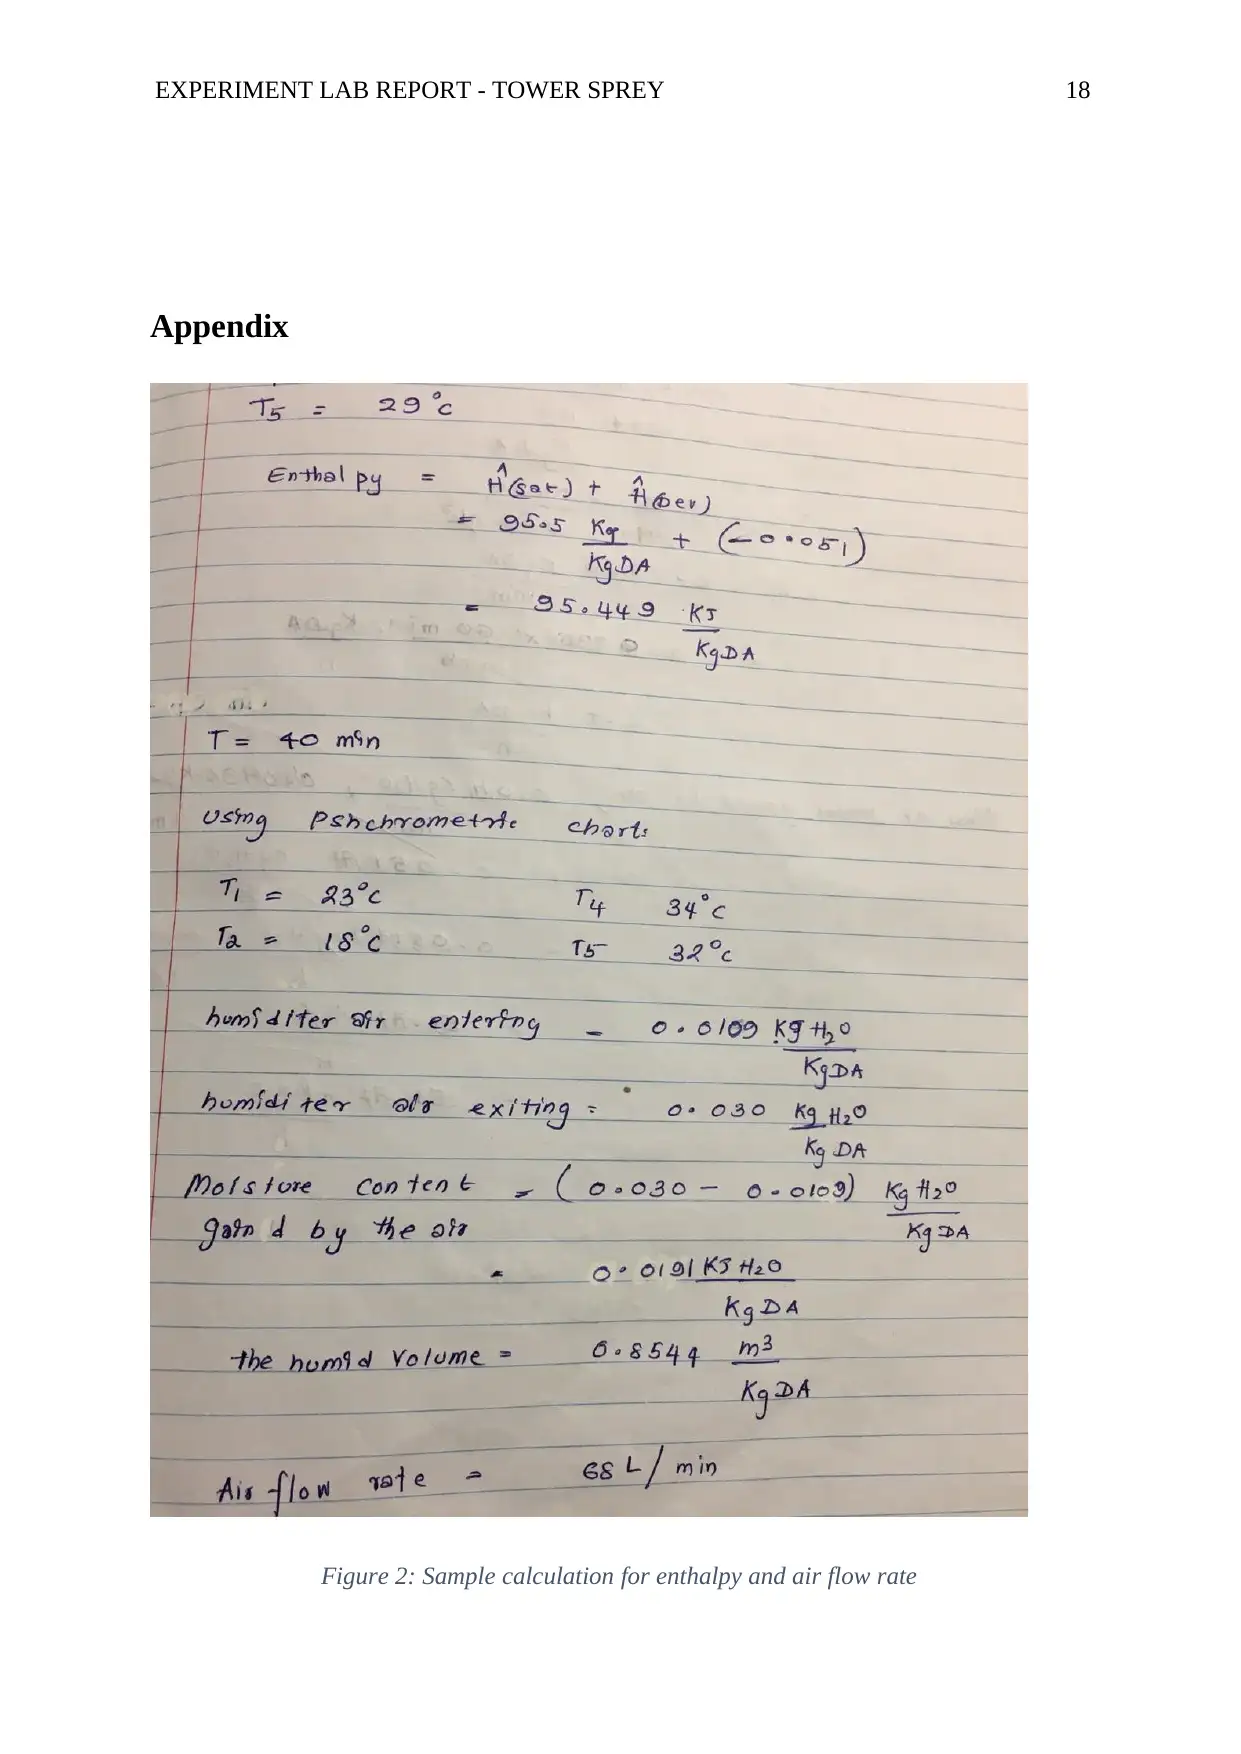 EXPERIMENT LAB REPORT - TOWER SPREY 18
Appendix
T5 = 29 °C
Enthalpy = Ĥ(sat) + Ĥ(dev)
= 95.5 Kg/KgDA + (-0.051)
= 95.449 KJ/KgDA
T = 40 min
Using Pshchrometric charts
T1 = 23°C T4 34°C
T2 = 18°C T5 32°C
humiditer air entering = 0.0109 Kg H2O/KgDA
humiditer air exiting = 0.030 Kg H2O/Kg DA
Moisture Content = (0.030 - 0.0109) Kg H2O/KgDA
gain d by the air
= 0.0191 KJ H2O/KgDA
the humid Volume = 0.8544 m3/KgDA
Air flow rate = 68 L/min
Figure 2: Sample calculation for enthalpy and air flow rate